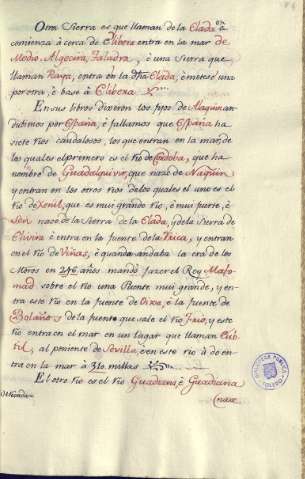 Otra Sierra es que llaman de la Elada, è
comienza à cerca de Elibera entra en la mar de
Medio, Algecira, Taladra, è una Sierra que
llaman Raya, entra en la dha Elada, è metese una
por otra, è base à Elibera
En sus libros dixeron los fijos de Alaquin an-
dubimos por España, è fallamos que España ha
siete rios caudalosos, los que entran en la mar, de
los quales el primero es el rio de Cordoba, que ha
nombre de Guadalquivir, que naze de Naquin
y entran en los otros rios de los quales el uno es el
rio de Xenil, que es mui grande rio, è mui fuerte, è
nace de la Sierra de la Elada, y de la Sierra de
Elvira è entra en la fuente de la Veica, y entran
en el rio de Viñas, è quando andaba la era de los
Moros en 296 años mandò fazer el Rey Mafo-
mad sobre el rio una Puente mui grande, y en-
tra este rio en la fuente de Oixa, è la fuente de
Bolaños, de la fuente que sale el rio frio, y este
rio entra en el mar en un lugar que llaman
al poniente de Sevilla, è en este rio à do en-
tra en la mar à 310 millas
El otro rio es el rio Guadiana, è Guadiana
nace